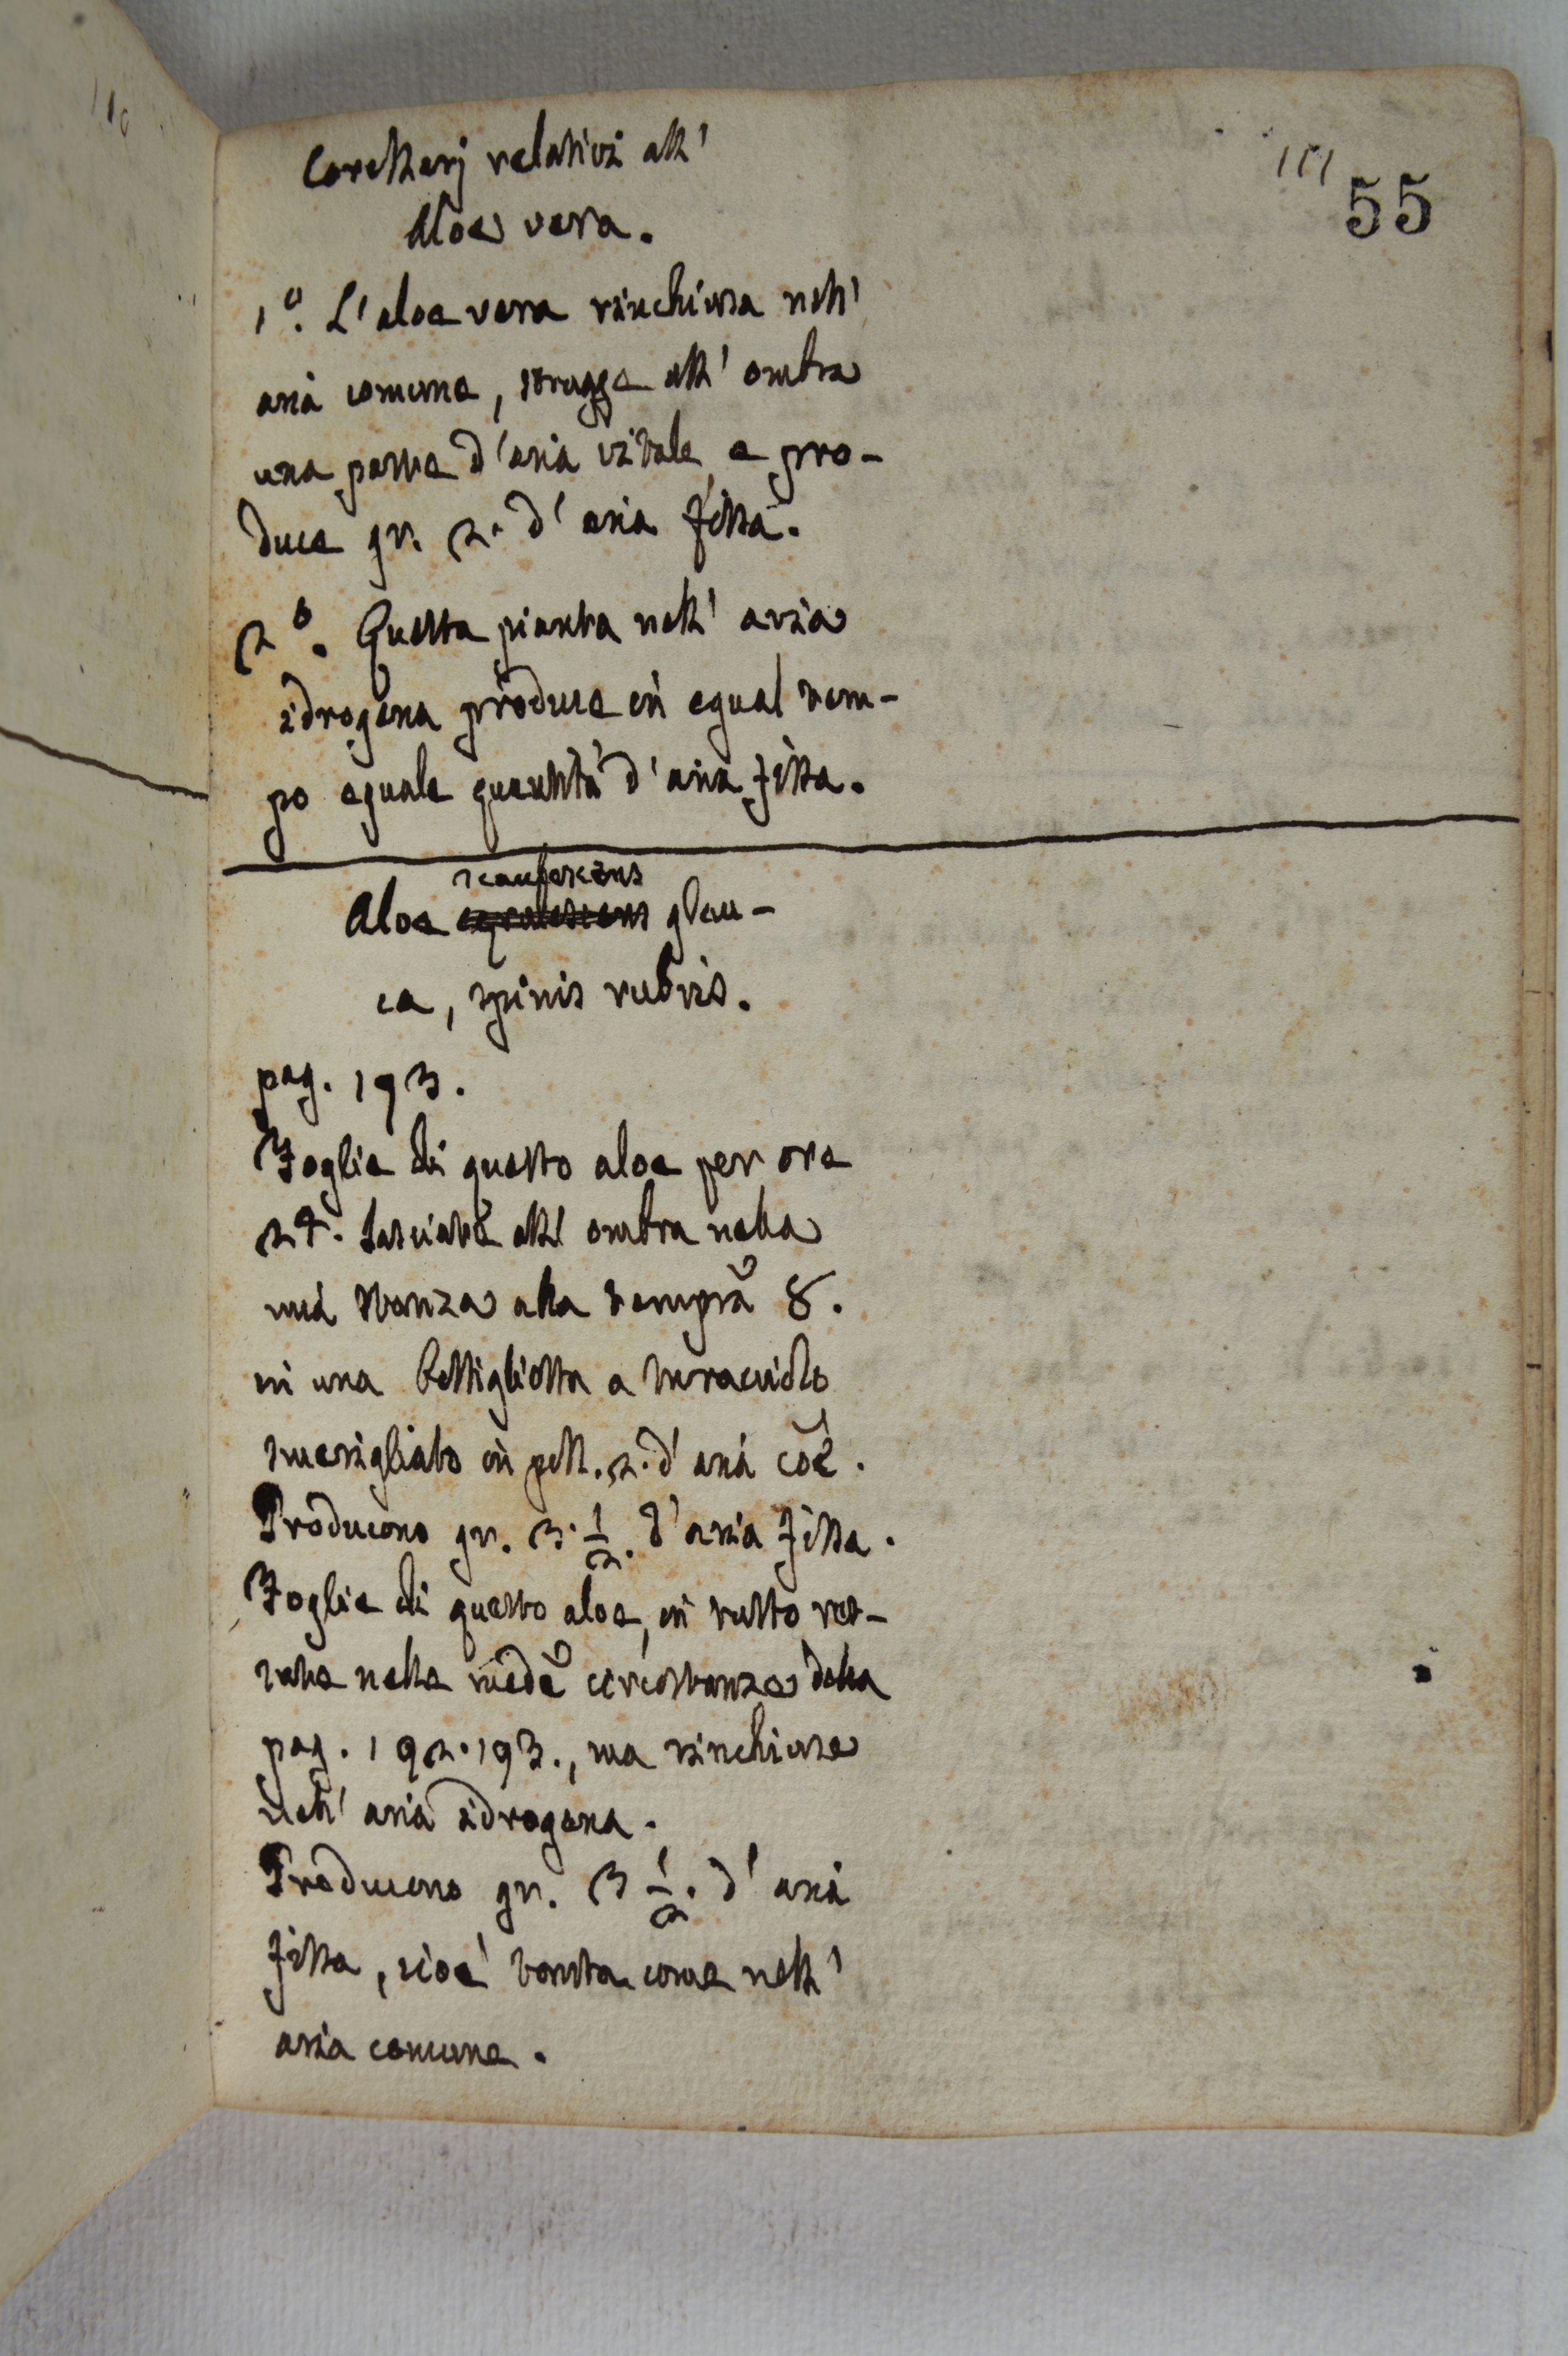 111
55
Corollarj relativi all'
Aloe vera.
1°. L'aloe vera rinchiusa nell'
aria comune, strugge all' ombra
una parte d'aria vitale e pro-
duce gr. 2. d' aria fissa.
2°. Questa pianta nell' aria
idrogena produce in egual tem-
po eguale quantità d' aria fissa.
caulescens
Aloe glau-
ca, spinis rubris.
pag. 193.
Foglie di questo aloe per ore
24. lasciate all' ombra nella
mia stanza alla temprã 8.
in una bottigliotta a turacciolo
smerigliato in poll. 2. d' aria coẽ.
Producono gr. 3. 1/2. d' aria fissa.
Foglie di questo aloe, in tutto
nelle medẽ circostanze della
pag. 192. 193., ma rinchiuse
nell' aria idrogena.
Producono gr. 3 1/2. d' aria
fissa, cioè tanta come nell'
aria comune.